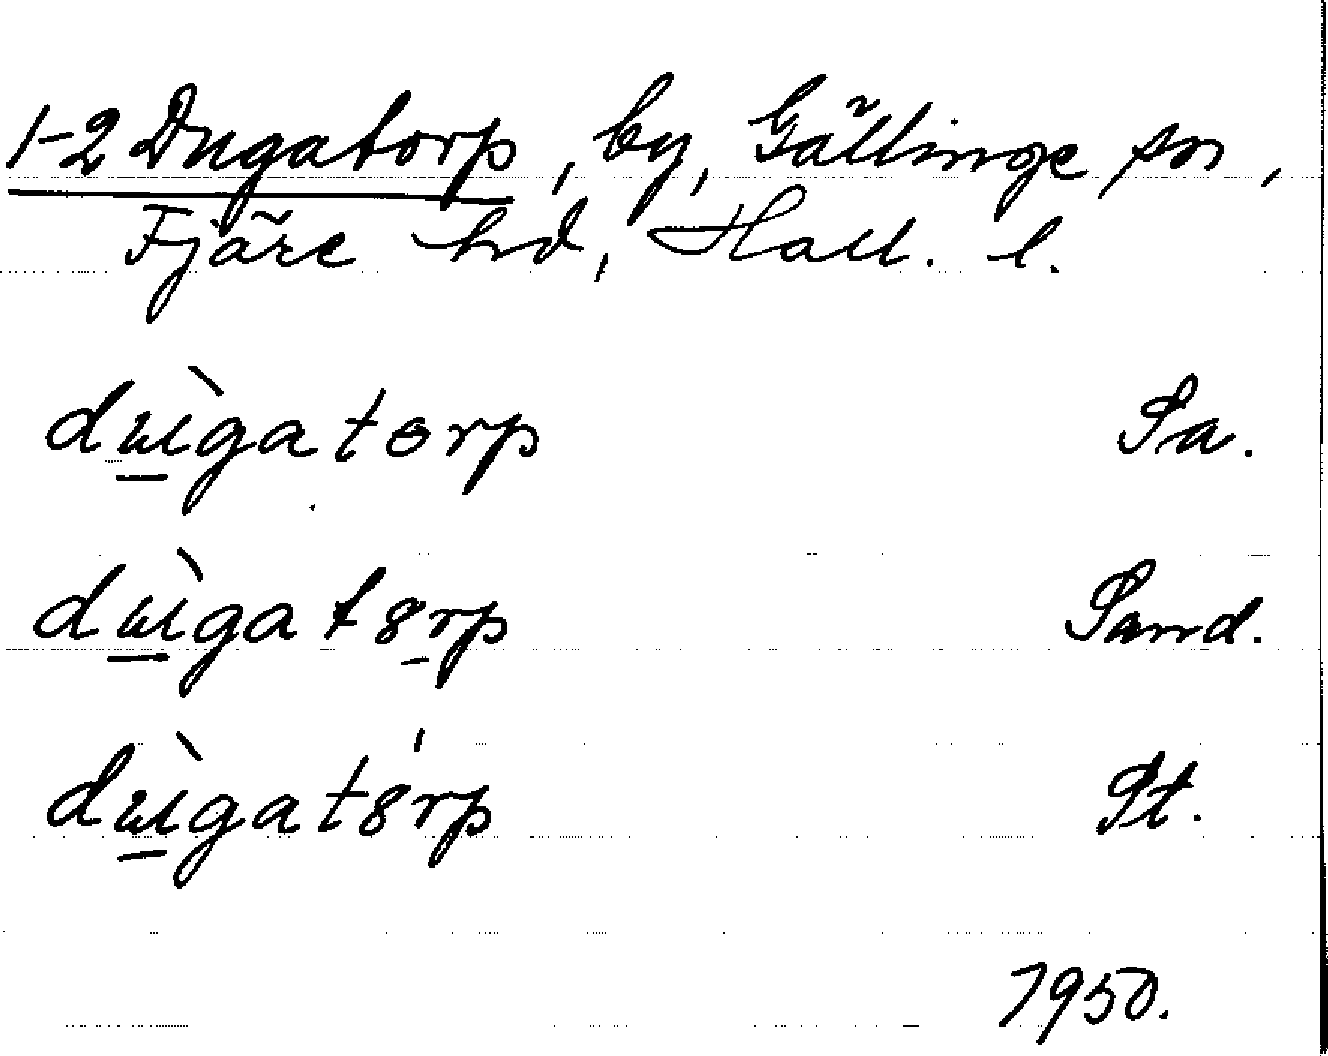 1-2 Dugatorp, by, Gällinge sn,
Fjäre hd, Hall. l.
dɯ̀gatorp Sa.
dɯ̀gat8rp Sand.
dɯ̀gat8́rp St.
1950.